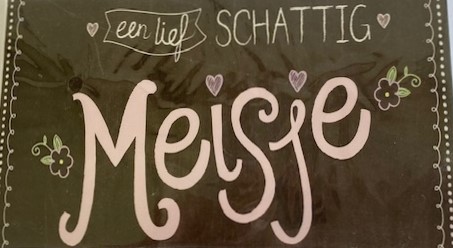 een lief SCHATTIG
Meisje